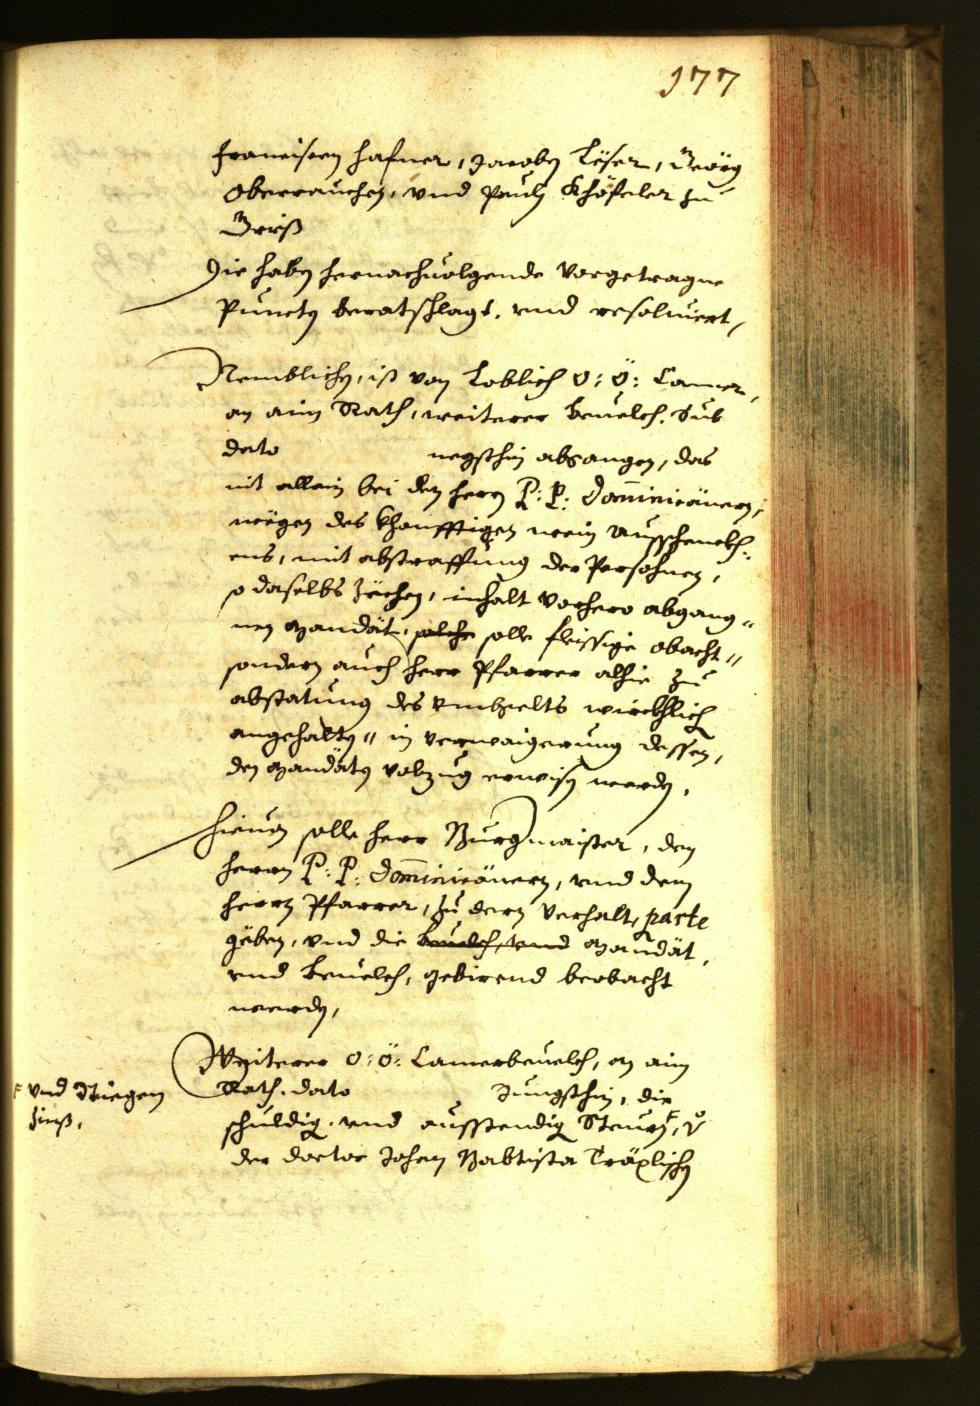 177
Francisen Hafner, Jacoben Löser, Georg
Oberrauchen, vnd Paulj Khöfeler zu
Griß
Die haben hernachuolgende vorgetragne
Puncten beratschlagt, vnd resoluiert,
Nemblichen, ist von Loblich O: Ö: Camer,
an ain Rath, weiterer beuelch, sub
dato negsthin abgangen, das
nit allain bei den herrn P: P: Dominicänern,
wegen des khonfftigen wein ausschenckh-
ens, mit abstraffung der Persohnen,
so daselbs zöchen, inhalt vorhero abgang-
nen Mandät, solche solle fleissige obacht"
sondern auch herr Pfarrer alhie zu
abstatung des Vmbgelts würckhlich
angehalten" in verwaigerung dessen,
den Mandäten volzug erwisen werden,
Hieuon solle herr Burgmaister, den
herrn P: P: Dominicänern, vnd dem
herrn Pfarrer, zu dern verhalt, parte
geben, vnd die beuelch, vnd Mandät,
vnd beuelch, gebirend beobacht
werden,
Weiterer O: Ö: Camerbeuelch, an ain
Rath, dato Jungsthin, die
F vnd
zinß,
schuldig, vnd ausstendig Steurn, F
der doctor Johan Babtista Träxlischen